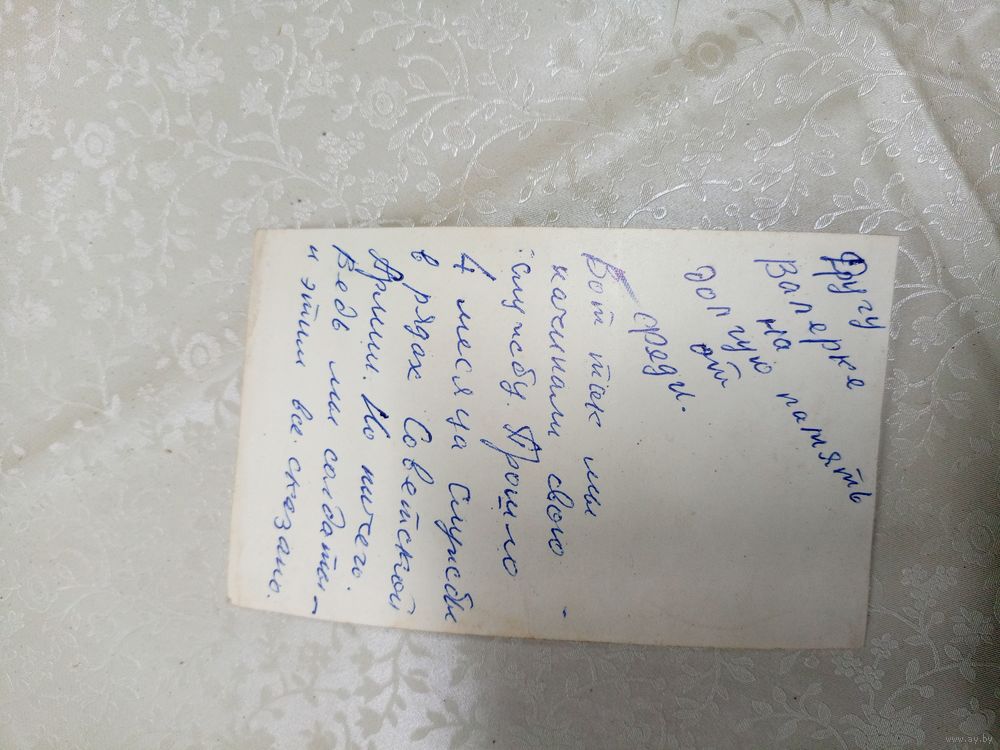 Другу
Валерке
на
долгую память
от
Фреди.
Вот так мы
начинали свою
службу. Прошло
4 месяца службы
в рядах Советской
Армии. Но ничего.
Ведь мы солдаты –
и этим все сказано.
www.ay.by